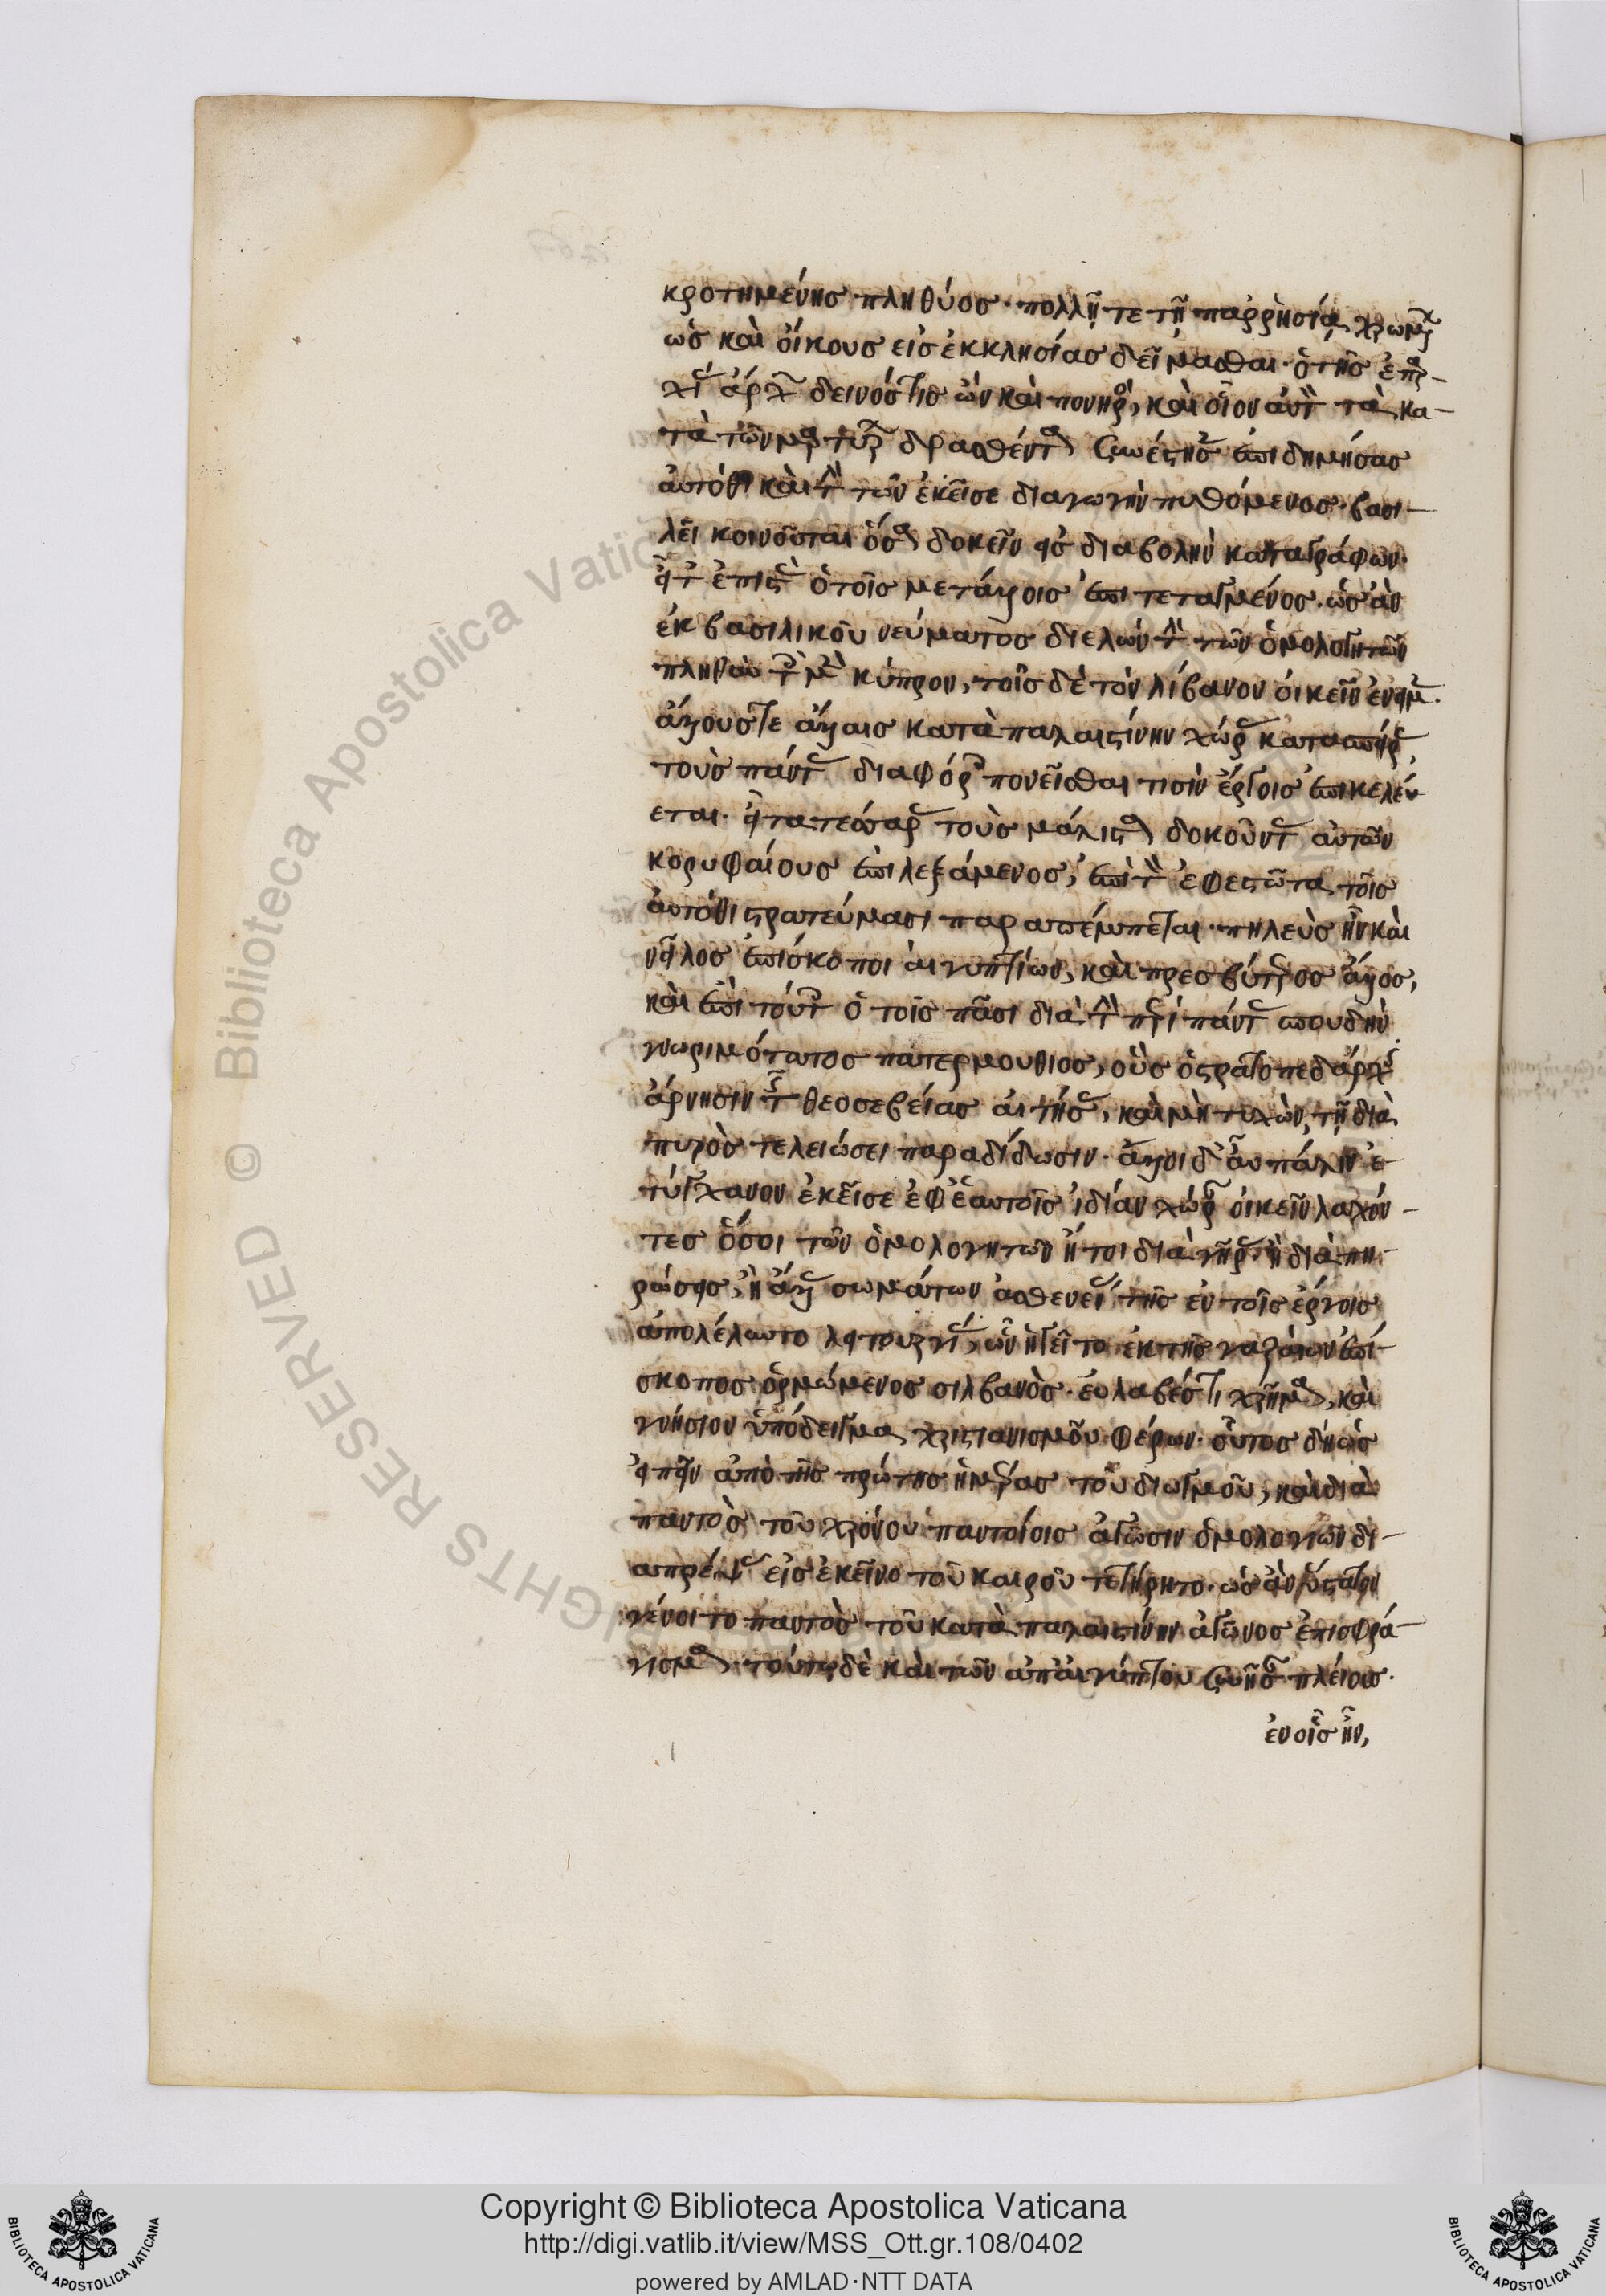 κροτημένης πληθύος· πολλῇ τε τῇ παρρησίᾳ χρωμ
ὡς καὶ οἴκους εἰς ἐκκλησίας δείμασθαι· ὁ τῆς ἐπρ-
χί ἄρχ δεινός τις ὢν καὶ πονηρ, καὶ οἷον αὐτ τὰ κα-
τὰ τῶν μαρτύρ δρασθέντα ἐπιδημήσας
αὐτόθι καὶ τ τῶν ἐκεῖσε διαγωγὴν πυθόμενος· βασι-
λεῖ κοινοῦται ὅσα δοκεῖν εἰς διαβολὴν καταγράφων·
εἶτ ἐπιστὰ ὁ τοῖς μετάλλοις ἐπιτεταγμένος· ὡς ἂν
ἐκ βασιλικοῦ νεύματος διελὼν τ τῶν ὁμολογητῶν
πληθὺν τ μὲ κύπρον, τοῖς δὲ τὸν λίβανον οἰκεῖν ἐνειμ·
ἄλλους τε ἄλλαις κατὰ παλαιστίνην χώρ κατασπείρ
τοὺς πάντ διαφόρ πονεῖσθαι τισὶν ἔργοις ἐπικελεύ
εται· εἶτα τέσσαρ τοὺς μάλιστα δοκοῦντ αὐτῶν
κορυφαίους ἐπιλεξάμενος, ἐπὶ τ ἐφεστῶτα τοῖς
αὐτόθι στρατεύμασι παραπέμπεται· πηλεὺς ἦν καὶ
νεῖλος ἐπίσκοποι αἰγυπτίων, καὶ πρεσβύτρος ἄλλος,
καὶ ἐπὶ τούτ ὁ τοῖς πᾶσι διὰ τ περὶ πάντ σπουδὴν
γνωριμότατος πατερμούθιος, οὓς ὁ στρατοπεδάρχ
ἄρνησιν τ θεοσεβείας αἰτήσ, καὶ μὴ τυχὼν, τῇ διὰ
πυρὸς τελειώσει παραδίδωσιν· ἄλλοι δ' αὖ πάλιν ἐ-
τύγχανον ἐκεῖσε ἐφ' ἑαυτοῖς ἰδίαν χώρ οἰκεῖν λαχόν-
τες ὅσοι τῶν ὁμολογητῶν ἤτοι διὰ γῆρ ἢ διὰ πη-
ρώσεις, ἢ ἄλλ σωμάτων ἀσθενεί τῆς ἐν τοῖς ἔργοις
ἀπολέλυντο λειτουργί, ὧν ἡγεῖτο ἐκ τῆς γαζαίων ἐπί-
σκοπος ὁρμώμενος σιλβανὸς· εὐλαβές τι χρῆμα, καὶ
γνήσιον ὑπόδειγμα χριστιανισμοῦ φέρων· οὗτος δὴ ὡς
εἰπεῖν ἀπὸ τῆς πρώτης ἡμέρας τοῦ διωγμοῦ, καὶ διὰ
παντὸς τοῦ χρόνου παντοίοις ἀγῶσιν ὁμολογιῶν δι-
απρέψ εἰς ἐκεῖνο τοῦ καιροῦ τετήρητο· ὡς ἂν ὕστατον
γένοιτο παντὸς τοῦ κατὰ παλαιστίνην ἀγῶνος ἐπισφρά-
γισμα· τούτῳ δὲ καὶ τῶν ἀπ' αἰγύπτου συνῆσ πλείους·
ἐν οἷς ἦν,
Copyright © Biblioteca Apostolica Vaticana
http://digi.vatlib.it/view/MSS_Ott.gr.108/0402
powered by AMLAD·NTT DATA